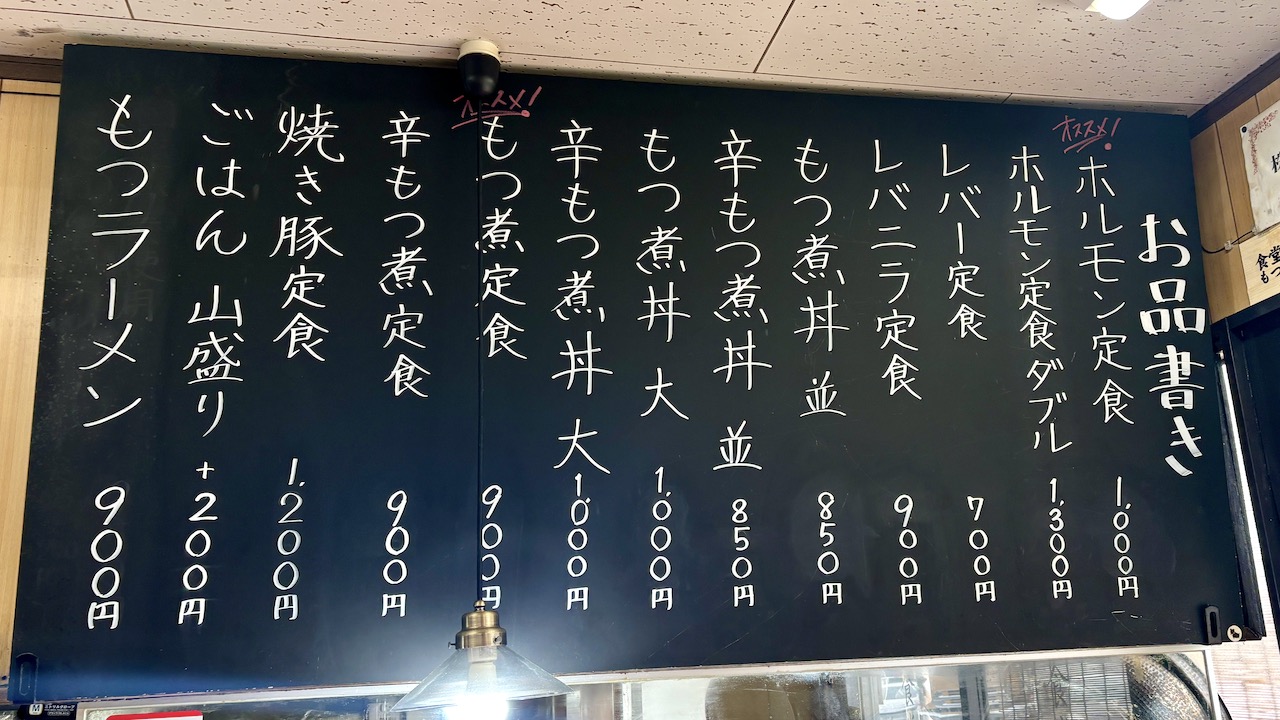 お品書き
オススメ!
ホルモン定食 1,000円
ホルモン定食ダブル 1,300円
レバー定食 700円
レバニラ定食 900円
もつ煮丼 並 850円
辛もつ煮丼 並 850円
もつ煮丼 大 1,000円
辛もつ煮丼 大 1,000円
オススメ!
もつ煮定食 900円
辛もつ煮定食 900円
焼き豚定食 1,200円
ごはん 山盛り +200円
もつラーメン 900円
食堂
もつ